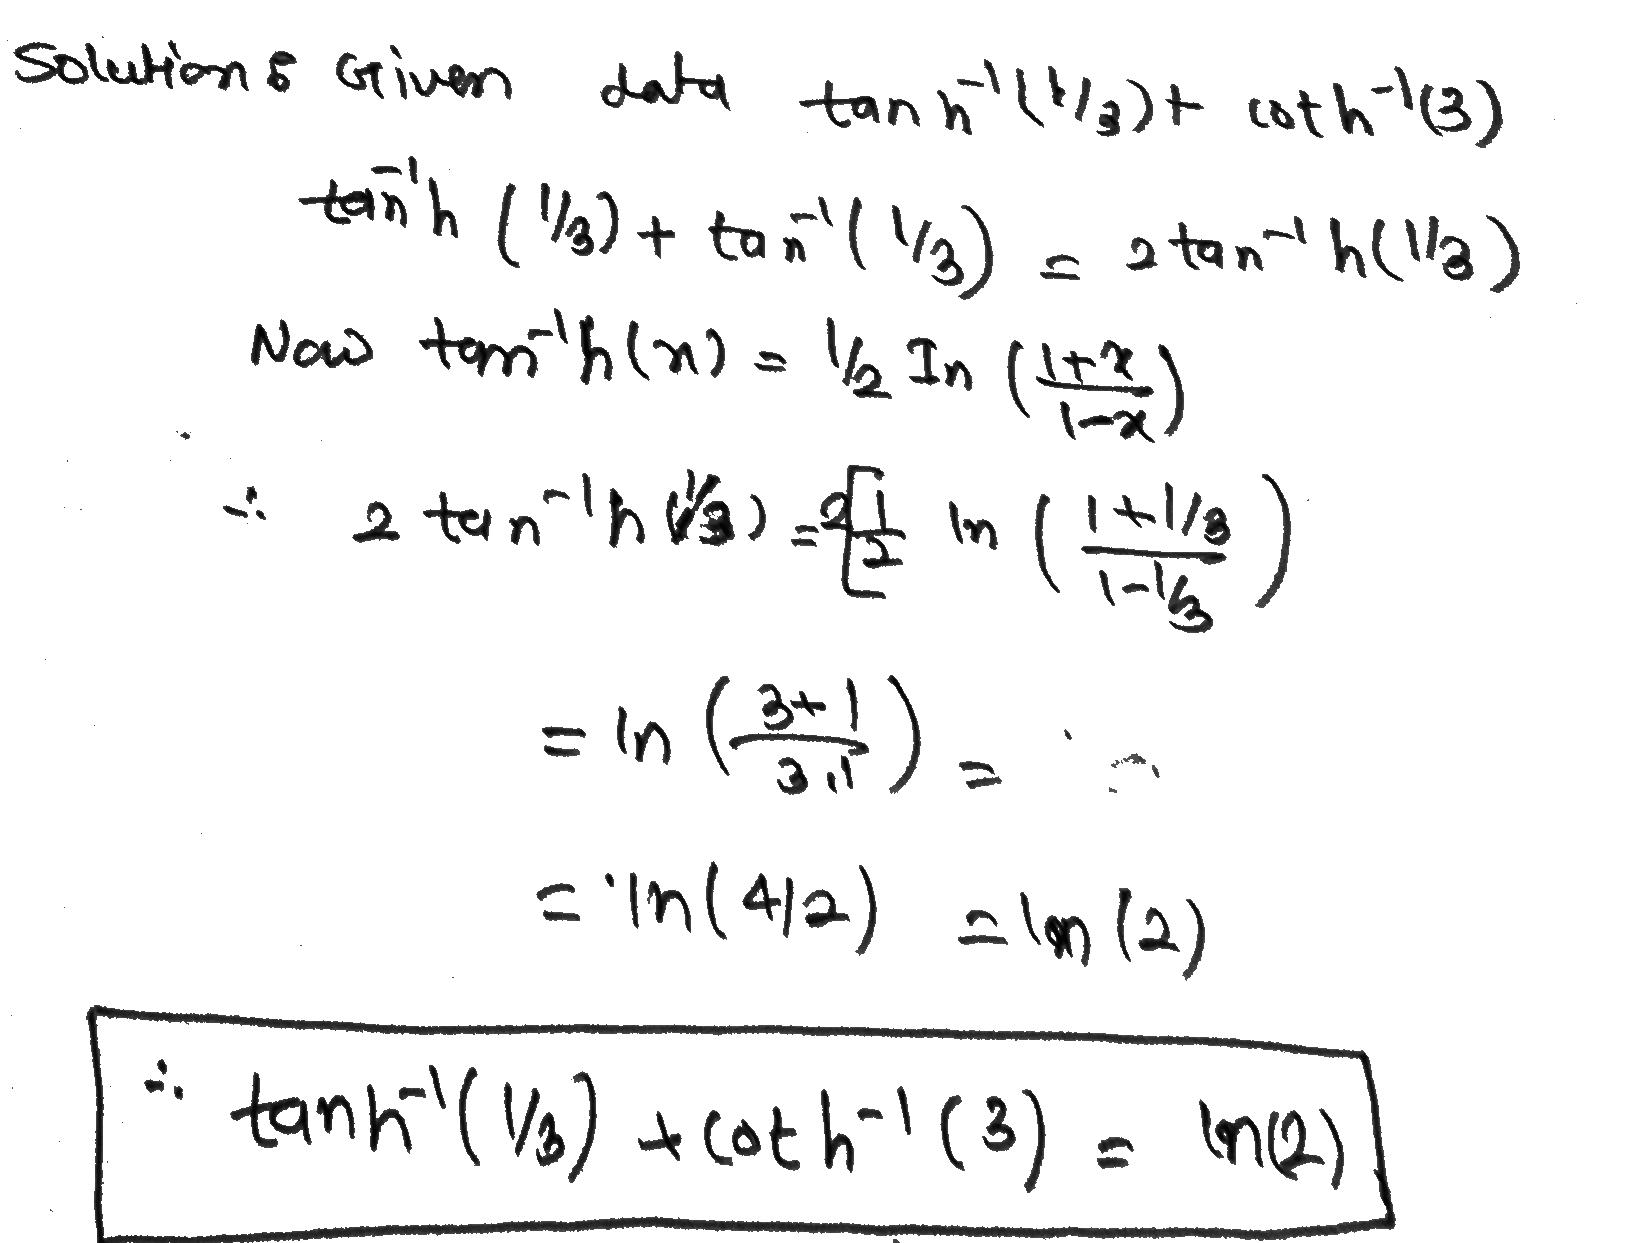 Solution : Given data tanh⁻¹(1/3) + coth⁻¹(3)
tan⁻¹h (1/3) + tan⁻¹(1/3) = 2 tan⁻¹ h(1/3)
Now tan⁻¹h(x) = 1/2 In (1+x/1-x)
∴ 2 tan⁻¹h (1/3) = 2[1/2 ln (1+1/3 / 1-1/3)
= ln (3+1/3-1) =
= ln(4/2) = ln (2)
∴ tanh⁻¹(1/3) + coth⁻¹(3) = ln(2)